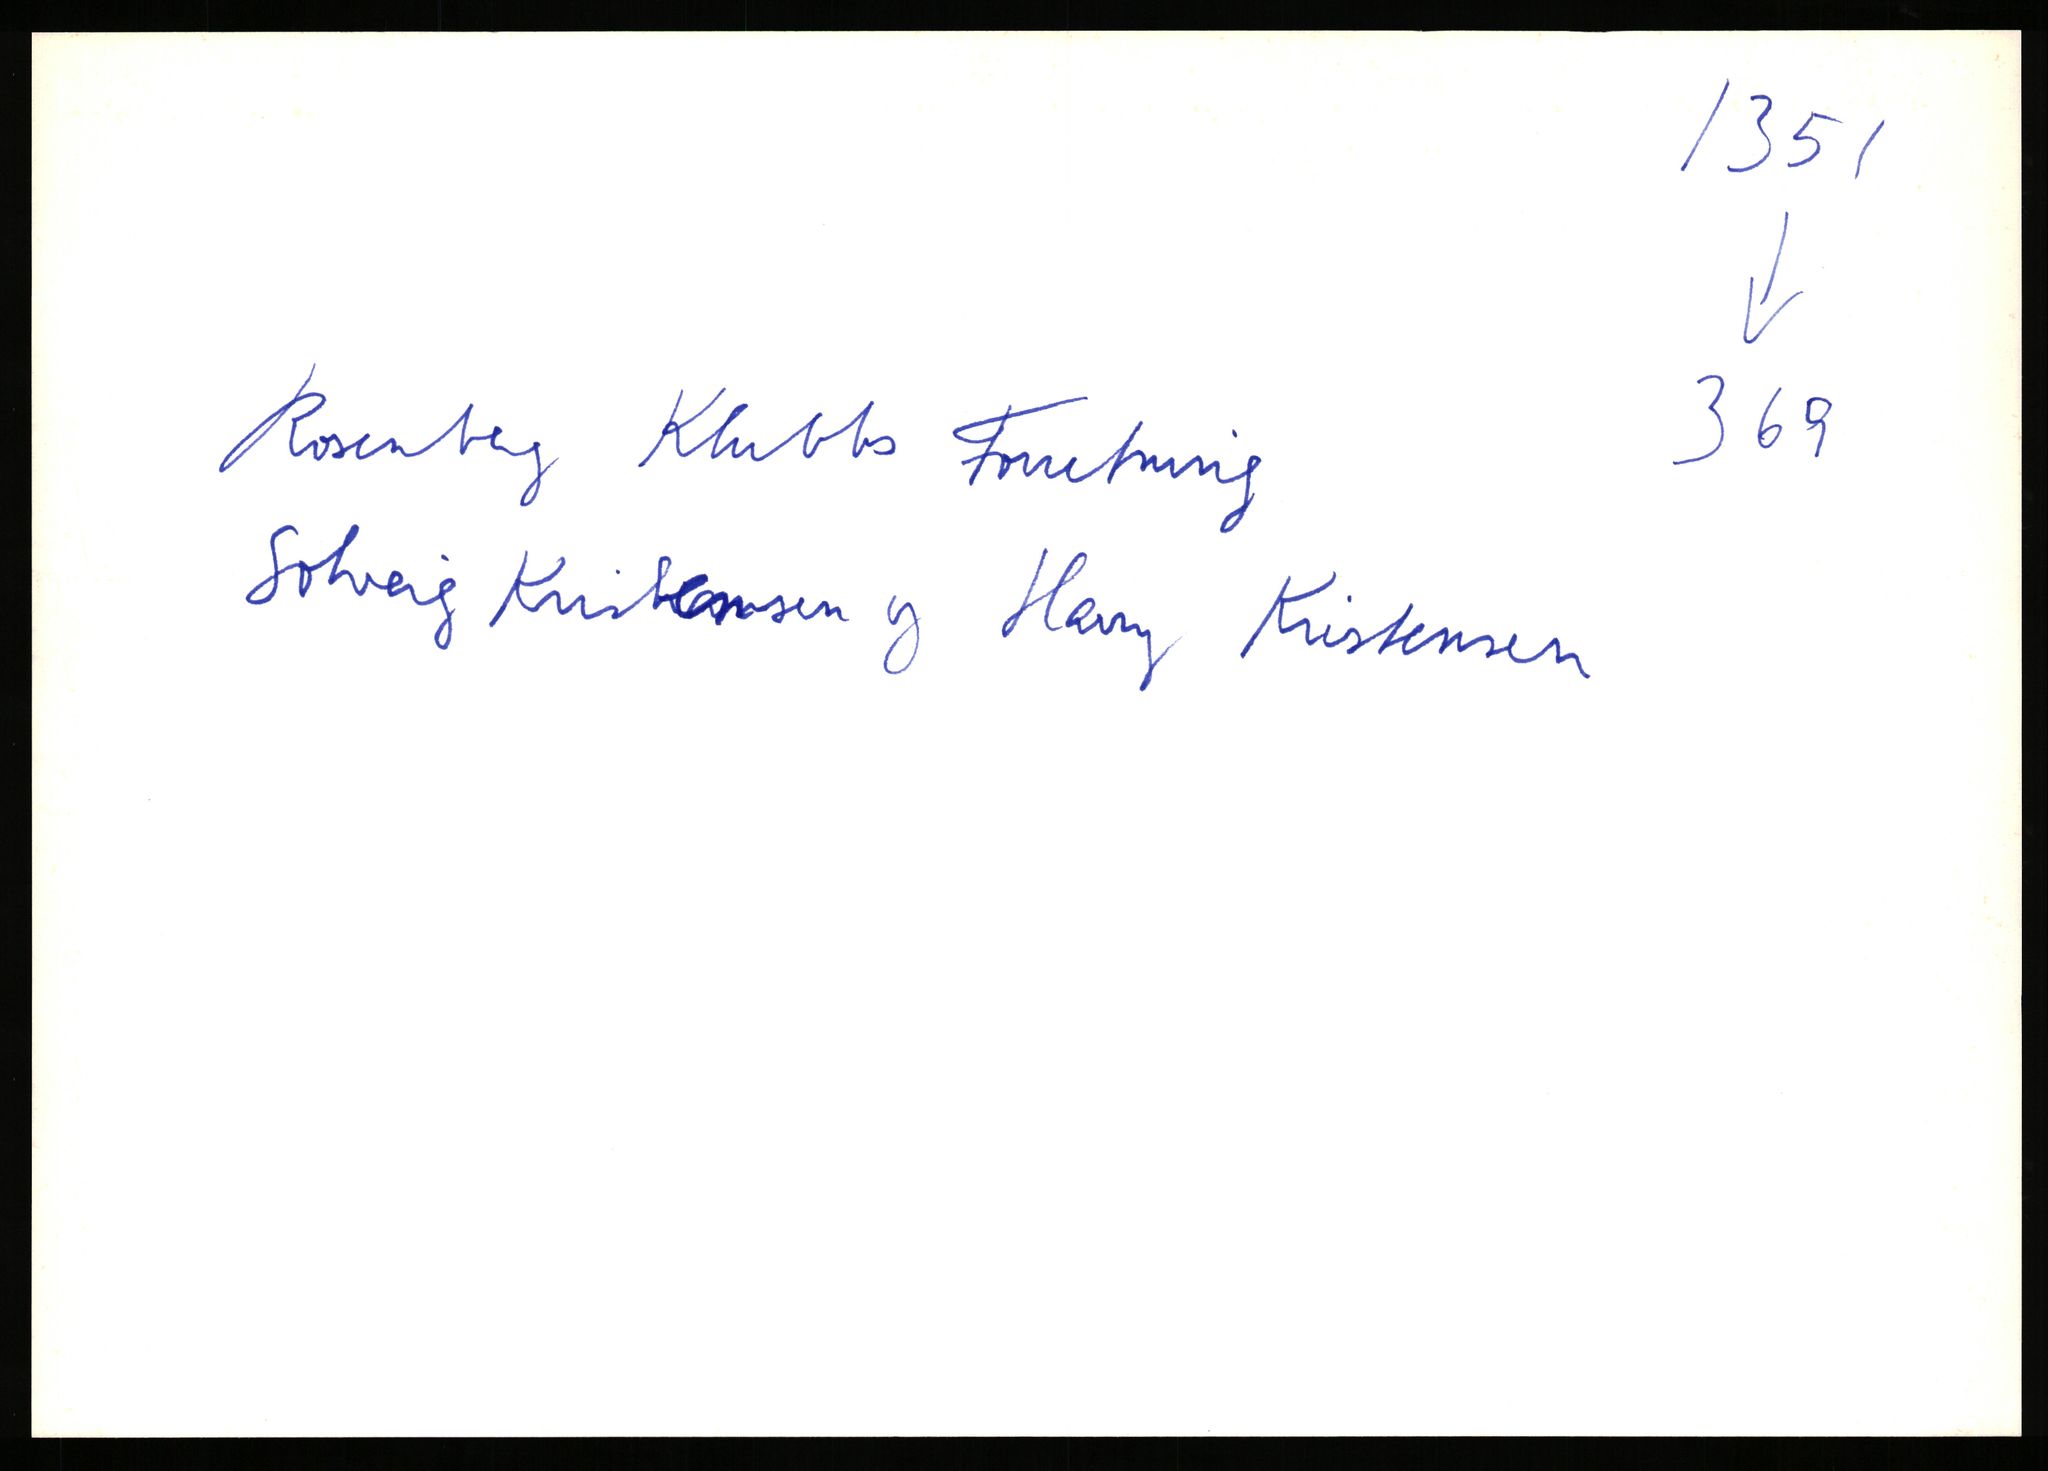 1351
↓
369
Rosenberg Klubbs Forretning
Solveig Kristensen og Harry Kristensen